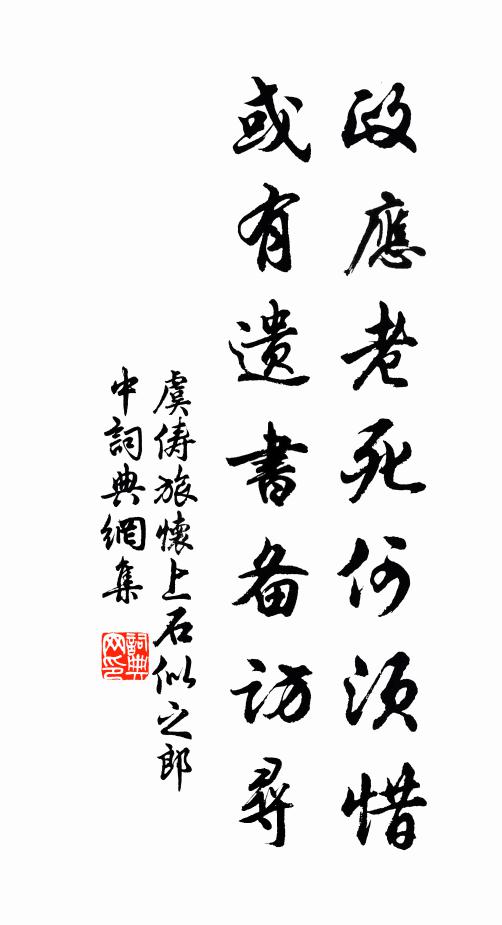 政應老死何須惜
或有遺書备訪尋
虞儔旅懷上石似之郎
中詞典網集
詞典
网印